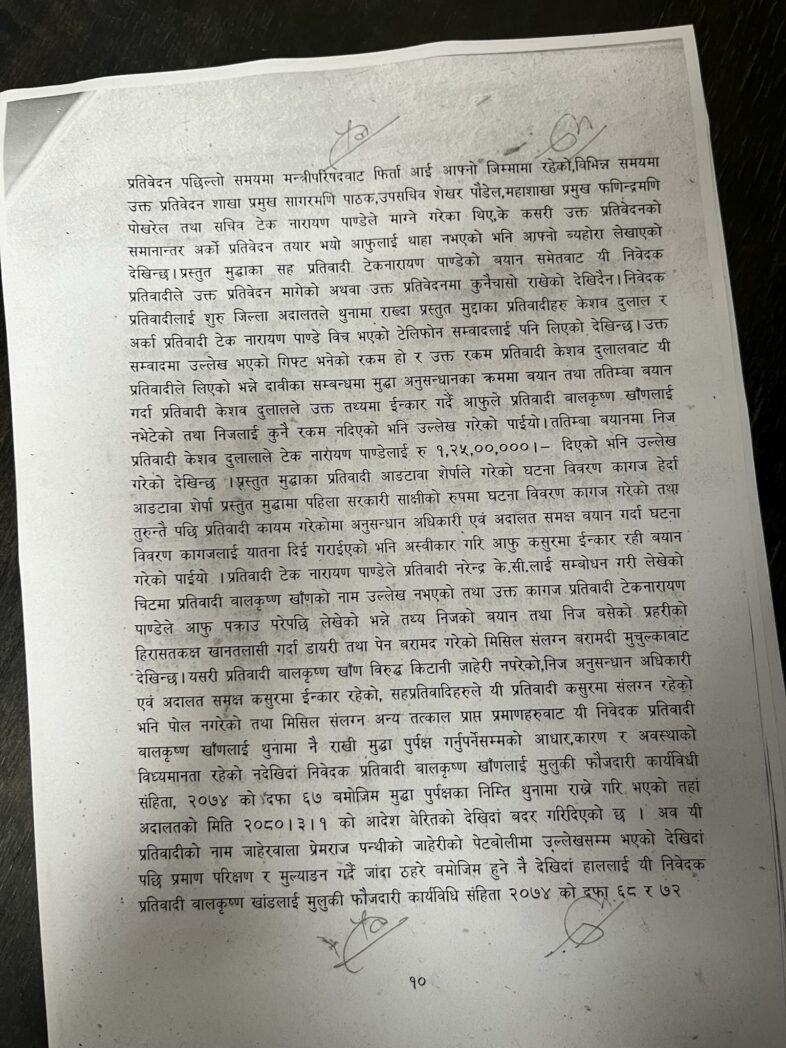 प्रतिवेदन पछिल्लो समयमा मन्त्रीपरिषदवाट फिर्ता आई आफ्नो जिम्मामा रहेको,विभिन्न समयमा
उक्त प्रतिवेदन शाखा प्रमुख सागरमणि पाठक,उपसचिव शेखर पौडेल,महाशाखा प्रमुख फणिन्द्रमणि
पोखरेल तथा सचिव टेक नारायण पाण्डेले माग्ने गरेका थिए,के कसरी उक्त प्रतिवेदनको
समानान्तर अर्को प्रतिवेदन तयार भयो आफुलाई थाहा नभएको भनि आफ्नो ब्यहोरा लेखाएको
देखिन्छ।प्रस्तुत मुद्धाका सह प्रतिवादी टेकनारायण पाण्डेको बयान समेतवाट यी निवेदक
प्रतिवादीले उक्त प्रतिवेदन मागेको अथवा उक्त प्रतिवेदनमा कुनैचासो राखेको देखिदैन।निवेदक
प्रतिवादीलाई शुरु जिल्ला अदालतले थुनामा राख्दा प्रस्तुत मुद्दाका प्रतिवादीहरु केशव दुलाल र
अर्का प्रतिवादी टेक नारायण पाण्डे विच भएको टेलिफोन सम्वादलाई पनि लिएको देखिन्छ।उक्त
सम्वादमा उल्लेख भएको गिफ्ट भनेको रकम हो र उक्त रकम प्रतिवादी केशव दुलालवाट यी
प्रतिवादीले लिएको भन्ने दावीका सम्बन्धमा मुद्धा अनुसन्धानका क्रममा बयान तथा ततिम्बा बयान
गर्दा प्रतिवादी केशव दुलालले उक्त तथ्यमा ईन्कार गर्दै आफुले प्रतिवादी बालकृष्ण खाँणलाई
नभेटेको तथा निजलाई कुनै रकम नदिएको भनि उल्लेख गरेको पाईयो।ततिम्बा बयानमा निज
प्रतिवादी केशव दुलालाले टेक नारायण पाण्डेलाई रु १,२५,००,०००।– दिएको भनि उल्लेख
गरेको देखिन्छ ।प्रस्तुत मुद्धाका प्रतिवादी आङटावा शेर्पाले गरेको घटना विवरण कागज हेर्दा
आङटावा शेर्पा प्रस्तुत मुद्धामा पहिला सरकारी साक्षीको रुपमा घटना विवरण कागज गरेको तथा
तुरुन्तै पछि प्रतिवादी कायम गरेकोमा अनुसन्धान अधिकारी एवं अदालत समक्ष बयान गर्दा घटना
विवरण कागजलाई यातना दिई गराईएको भनि अस्वीकार गरि आफु कसुरमा ईन्कार रही बयान
गरेको पाईयो ।प्रतिवादी टेक नारायण पाण्डेले प्रतिवादी नरेन्द्र के.सी.लाई सम्बोधन गरी लेखेको
चिटमा प्रतिवादी बालकृष्ण खाँणको नाम उल्लेख नभएको तथा उक्त कागज प्रतिवादी टेकनारायण
पाण्डेले आफु पक्राउ परेपछि लेखेको भन्ने तथ्य निजको बयान तथा निज बसेको प्रहरीको
हिरासतकक्ष खानतलासी गर्दा डायरी तथा पेन बरामद गरेको मिसिल संलग्न बरामदी मुचुल्कावाट
देखिन्छ।यसरी प्रतिवादी बालकृष्ण खाँण विरुद्ध किटानी जाहेरी नपरेको,निज अनुसन्धान अधिकारी
एवं अदालत समक्ष कसुरमा ईन्कार रहेको, सहप्रतिवादिहरुले यी प्रतिवादी कसुरमा संलग्न रहेको
भनि पोल नगरेको तथा मिसिल संलग्न अन्य तत्काल प्राप्त प्रमाणहरुवाट यी निवेदक प्रतिवादी
बालकृष्ण खाँणलाई थुनामा नै राखी मुद्धा पुर्पक्ष गर्नुपर्नेसम्मको आधार,कारण र अवस्थाको
विध्यमानता रहेको नदेखिदां निवेदक प्रतिवादी बालकृष्ण खाँणलाई मुलुकी फौजदारी कार्यविधी
संहिता, २०७४ को दफा ६७ बमोजिम मुद्धा पुर्पक्षका निम्ति थुनामा राख्ने गरि भएको तहां
अदालतको मिति २०८०।३।१ को आदेश बेरितको देखिदां बदर गरिदिएको छ । अव यी
प्रतिवादीको नाम जाहेरवाला प्रेमराज पन्थीको जाहेरीको पेटबोलीमा उल्लेखसम्म भएको देखिदां
पछि प्रमाण परिक्षण र मुल्याङन गर्दै जांदा ठहरे बमोजिम हुने नै देखिदां हाललाई यी निवेदक
प्रतिवादी बालकृष्ण खांडलाई मुलुकी फौजदारी कार्यविधि संहिता २०७४ को दफा ६८ र ७२
१०